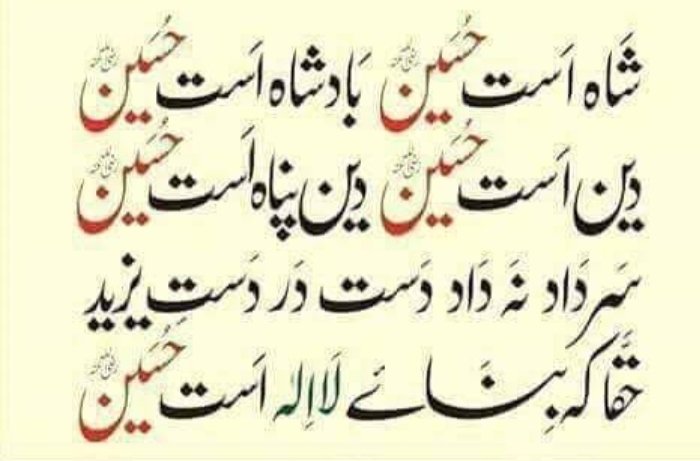 شَاہ اَست حُسَین بَادشاہ اَست حُسَین
دِین اَست حُسَین دِین پَناہ اَست حُسَین
سَر دَاد نَہ دَاد دَست دَر دَستِ یزید
حَقَّا کہ بِنَائے لَا اِلٰہ اَست حُسَین